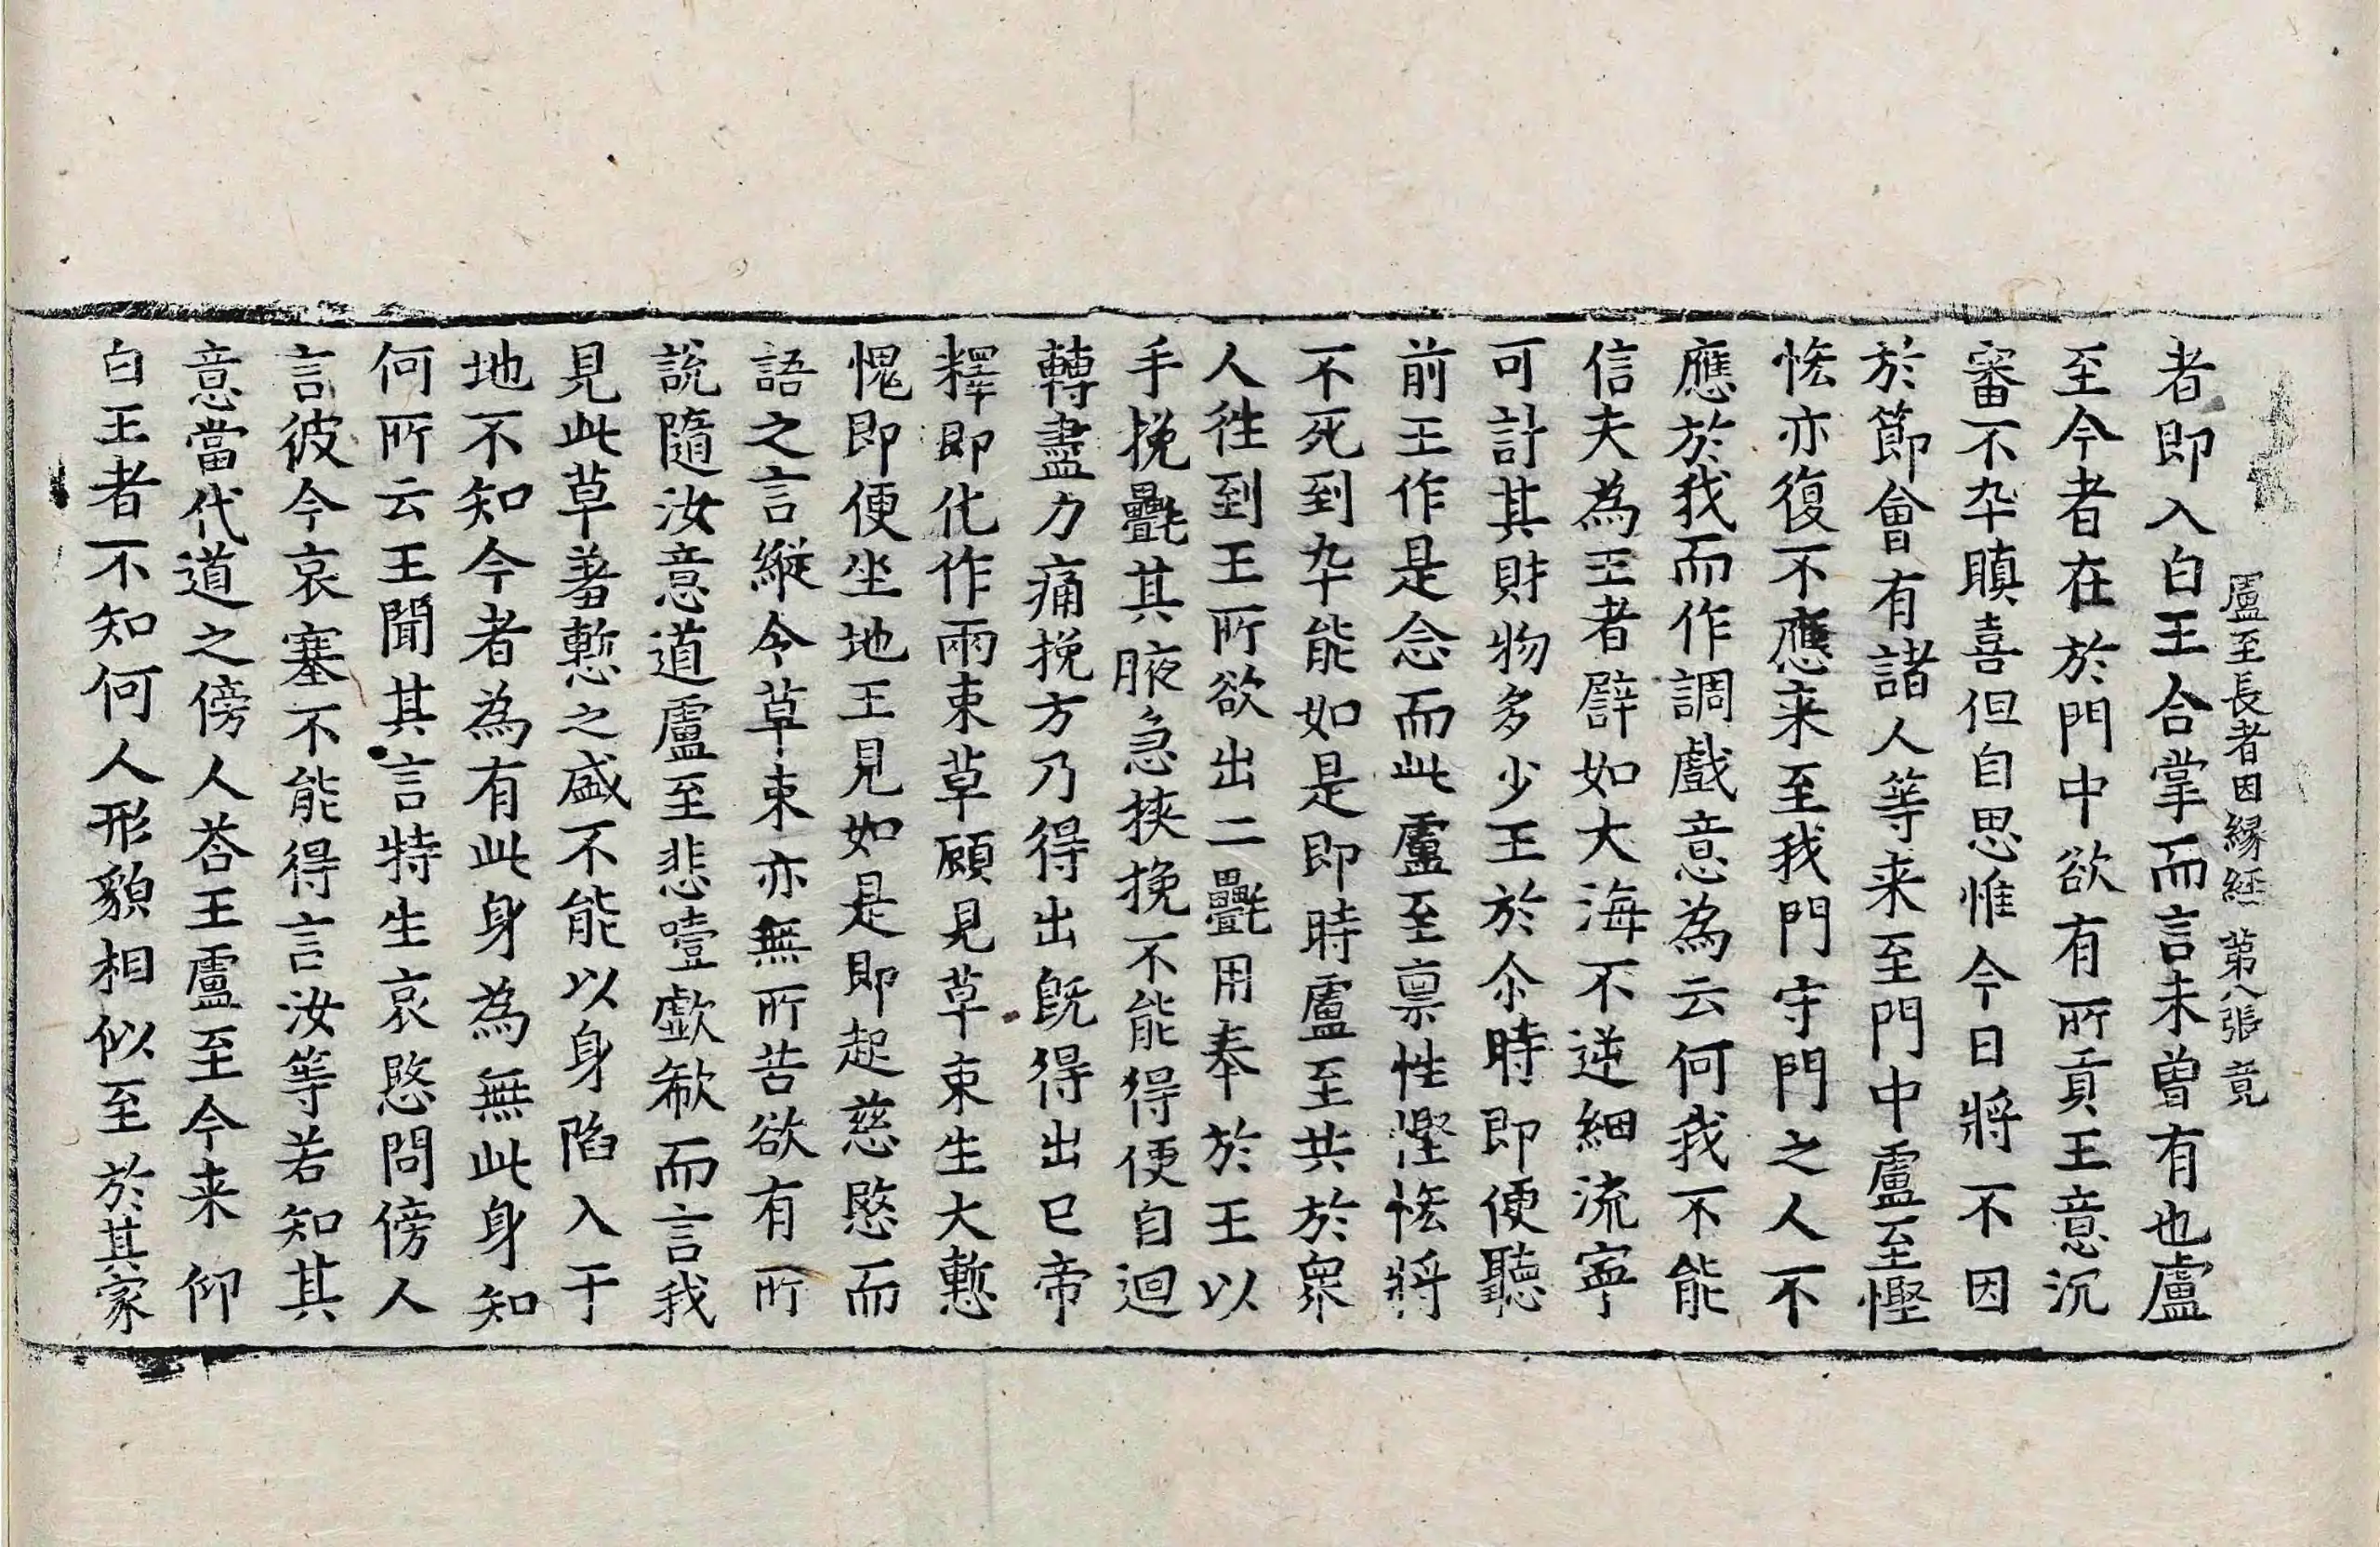 盧至長者因縁経 第八張 竟
者即入白王合掌而言未曾有也盧
至今者在於門中欲有所貢王意沉
審不卒瞋喜但自思惟今日將不因
於節會有諸人等来至門中盧至慳
悋亦復不應来至我門守門之人不
應於我而作調戲意為云何我不能
信夫為王者譬如大海不逆細流寧
可計其財物多少王於尒時即便聽
前王作是念而此盧至禀性慳悋將
不死到卒能如是即時盧至共於衆
人徃到王所欲出二㲲用奉於王以
手挽㲲其腋急挾挽不能得便自迴
轉盡力痛挽方乃得出既得出已帝
釋即化作兩束草顧見草束生大慙
愧即便坐地王見如是即起慈愍而
語之言縱令草束亦無所苦欲有所
説隨汝意道盧至悲噎歔欷而言我
見此草羞慙之盛不能以身陷入于
地不知今者為有此身為無此身知
何所云王聞其言特生哀愍問傍人
言彼今哀塞不能得言汝等若知其
意當代道之傍人荅王盧至今来仰
白王者不知何人形貌相似至於其家